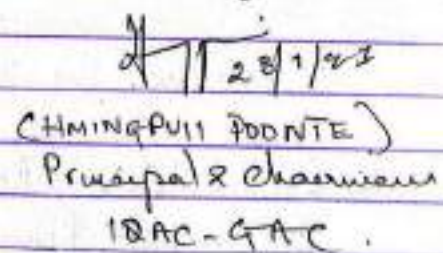 28/1/21
(HMINGPUII POONTE)
Principal & Chairman
IQAC-GAC.